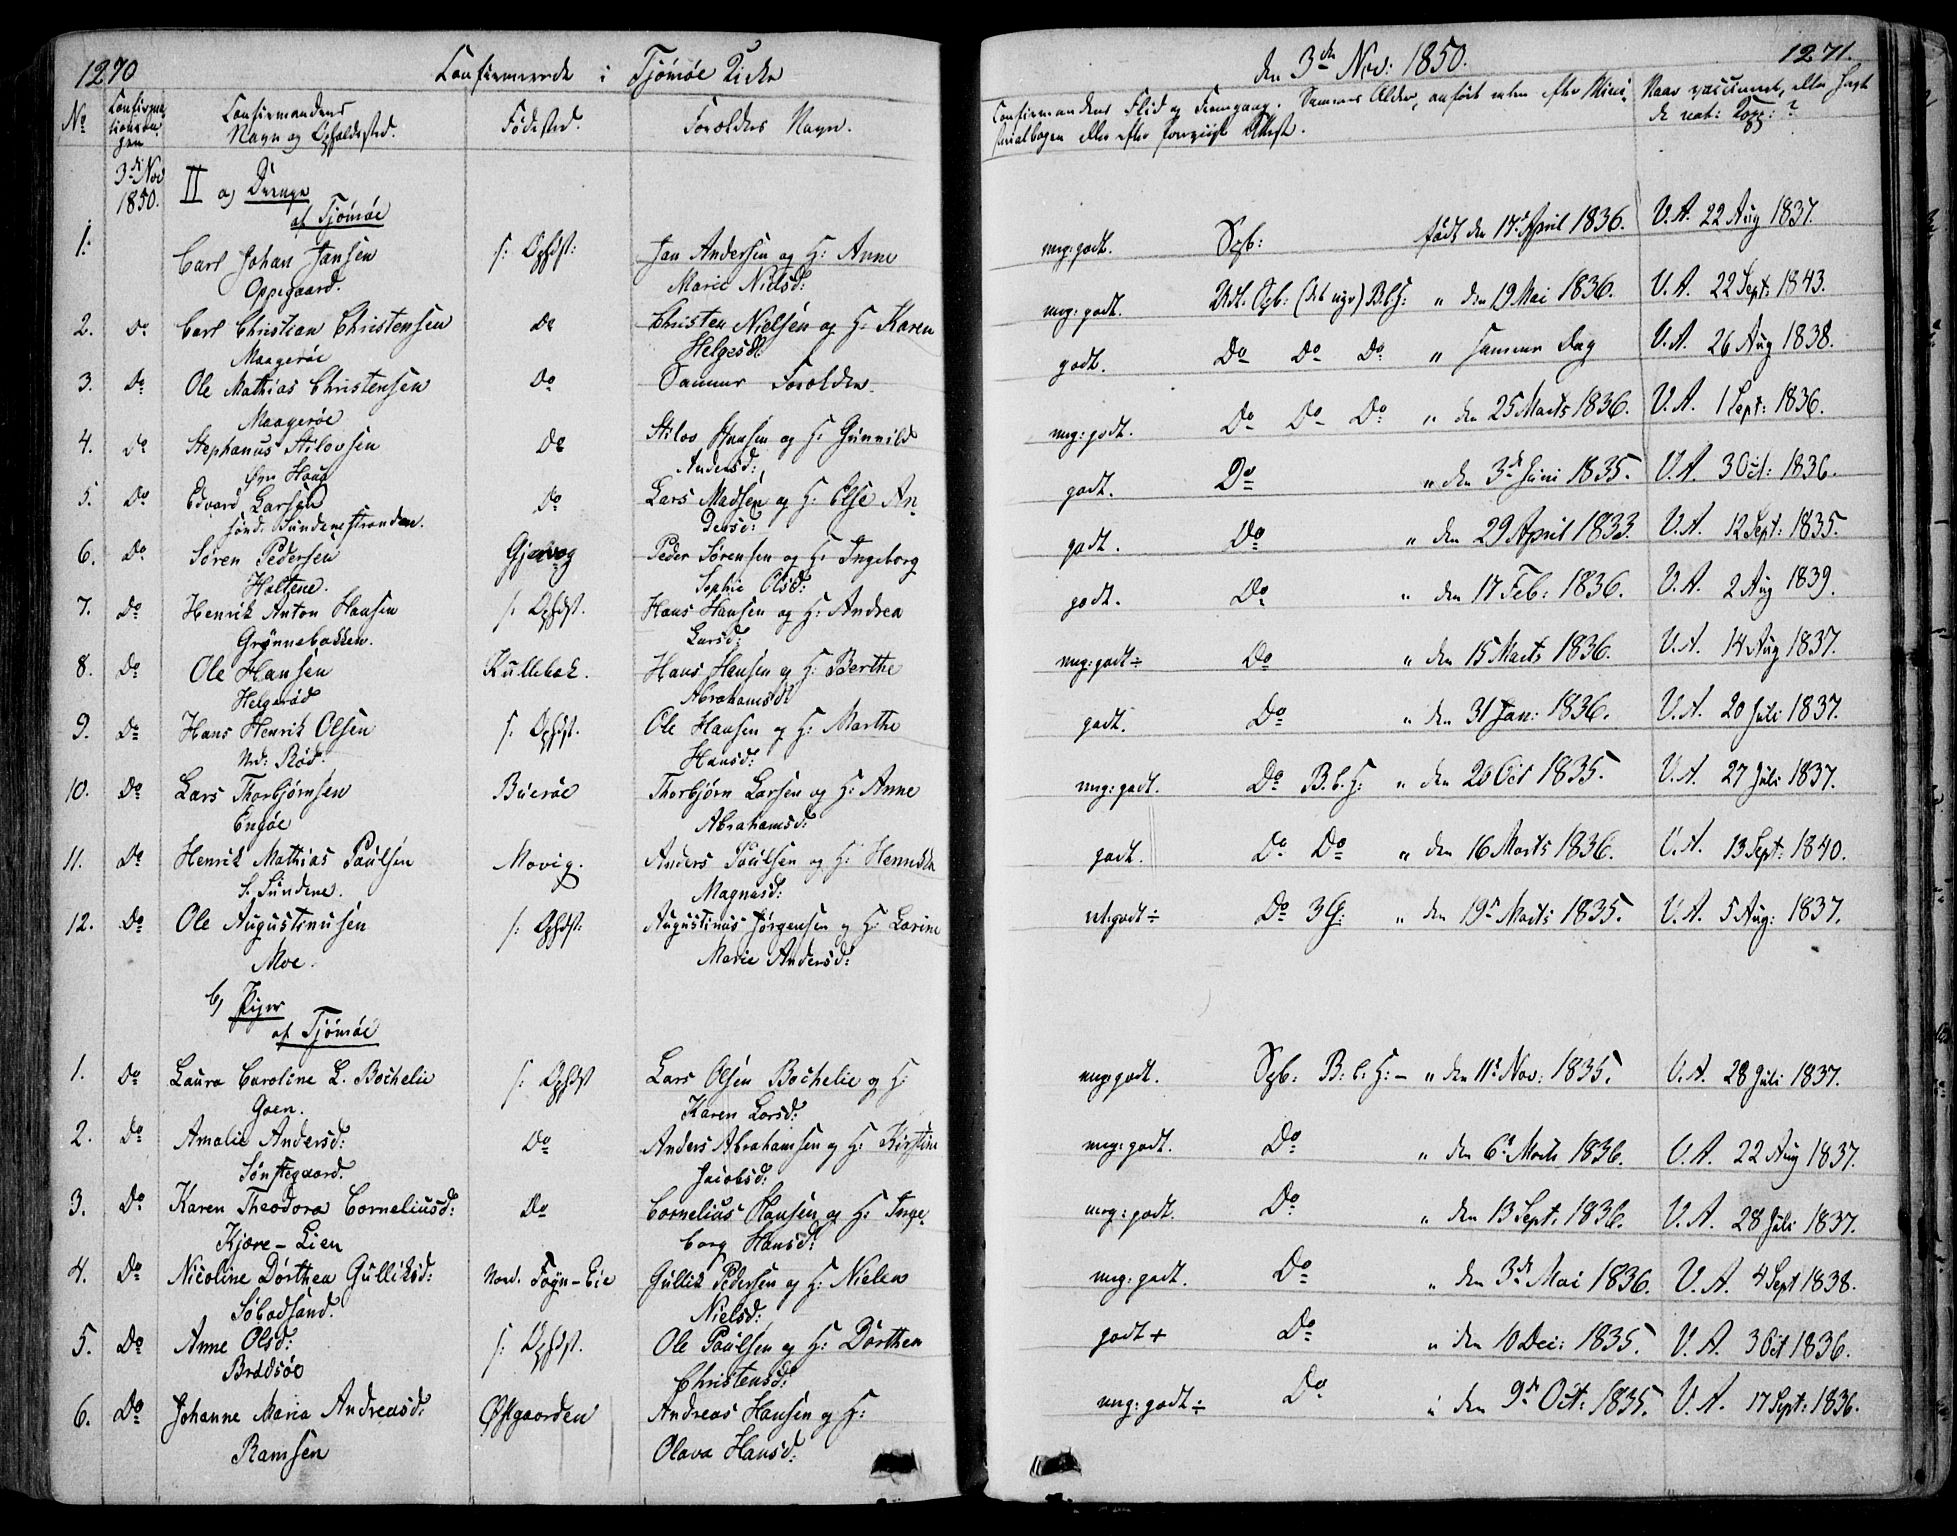 1270
Confirmerede i Tjömöe Kirke
No
Confirmationsdagen
Confirmandens Navn og Opholdssted.
Födested.
Forældres Navn.
3d Nov 1850.
II a) Drenge
af Tjömöe
1. Carl Johan Jansen s: Ophdst: Jan Andersen og H: Anne
Oppegaard. Marie Nielsd:
2. Do Carl Christian Christensen Do Christen Nielsen og H: Karen
Maagerøe Helgesd:
3. Do Ole Mathias Christensen Do Samme Forældre.
Maagerøe
4. Do Stephanus Stilovsen Do Stilov Hansen og H: Gunnild
Haug Andersd:
5. Do Edvard Larsen Do Lars Madsen og H: Else An-
sönd: Sundenestranden. dersd:
6. Do Sören Pedersen Gjervog Peder Sörensen og H: Ingeborg
Holtene. Sophie Olsd:
7. Do Henrik Anton Hansen s: Ophdst. Hans Hansen og H: Andrea
Grönnebakken. Larsd:
8. Do Ole Hansen Kullebæk. Hans Hansen og H: Berthe
Helgeröd Abrahamsd:
9. Do Hans Henrik Olsen s: Ophdst. Ole Hansen og H: Marthe
Nd: Röd. Hansd:
10. Do Lars Thorbjörnsen Bueröe Thorbjörn Larsen og H: Anne
Engöe Abrahamsd:
11. Do Henrik Mathias Paulsen Movig. Anders Paulsen og H:
S. Sundene. Magnusd:
12. Do Ole Augustinusen s: Ophdst: Augustinus Jörgensen og H: Larine
Moe. Marie Andersd:
b) Piger
af Tjömöe
1. Do Laura Caroline L. Bochelie s: Ophdst Lars Olsen Bochelie og H:
Goen. Karen Larsd:
2. Do Amalie Andersd: Do Anders Abrahamsen og H: Kirstine
Sönstegaard. Jacobsd:
3. Do Karen Theodora Corneliusd: Do Cornelius Hansen og H: Inge-
Kjære-Lien borg Hansd:
4. Do Nicoline Dorthea Gulliksd: Nord. Fogn-Eie Gullik Pedersen og H: Nielea
Söbodsand. Nielsd:
5. Do Anne Olsd: s: Ophdst. Ole Paulsen og H: Dorthea
Brødsöe Christensd:
6. Do Johanne Maria Andreasd: Østgaarden Andreas Hansen og H:
Ramsen Olava Hansd:
den 3de Nov: 1850.
1271.
Confirmandens Flid og Fremgang. Sammes Alder, anfört enten efter Mini-
sterialbogen eller efter foreviist Attest.
Naar vaccineret, eller havt
de nat: Kopp: ?
meg: godt. Sgb: födt den 17d April 1836. V. A. 22 Aug 1837.
meg: godt. Udt. Sgb: B.b.H: " den 19 Mai 1836. V. A. 22 Sept: 1843.
godt. Do Do Do " samme Dag V. A. 26 Aug 1838.
meg: godt. Do Do Do " den 25 Marts 1836. V. A. 1 Sept: 1836.
godt. Do " den 3d Juni 1835. V. A. 3 Oct: 1836.
godt. Do " den 29 April 1833. V. A. 12 Sept: 1835.
godt. Do " den 17 Feb: 1836. V. A. 2 Aug 1839.
meg: godt ÷ Do " den 15 Marts 1836. V. A. 14 Aug 1837.
godt. Do " den 31 Jan: 1836. V. A. 20 Juli 1837.
meg: godt. Do B.b.H: " den 20 Oct 1835. V. A. 27 Juli 1837.
godt. Do Do " den 16 Marts 1836. V. A. 13 Sept: 1840.
ret: godt ÷ Do 3 G: " den 19d Marts 1835. V. A. 5 Aug: 1837.
meg: godt. Sgb: B: b: H: - " den 11d Nov: 1835. V. A. 28 Juli 1837.
meg: godt. Do " den 6d Marts 1836. V. A. 22 Aug 1837.
meg: godt. Do " den 13 Sept: 1836. V. A. 28 Juli 1837.
meg: godt. Do " den 3de Mai 1836. V. A. 4 Sept 1838.
godt + Do " den 10 Dec: 1835. V. A. 3 Oct 1836.
meg: godt ÷ Do " den 9de Oct: 1835. V. A. 17 Sept: 1836.